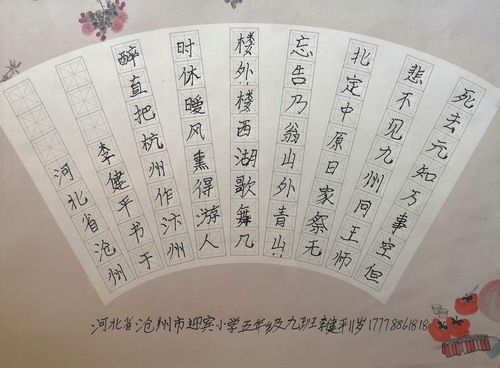 死去元知万事空但
悲不见九州同王师
北定中原日家祭无
忘告乃翁山外青山
楼外楼西湖歌舞几
时休暖风熏得游人
醉直把杭州作汴州
李健平书于
河北省沧州
河北省沧州市迎宾小学五年级九班李健平11岁17778861818